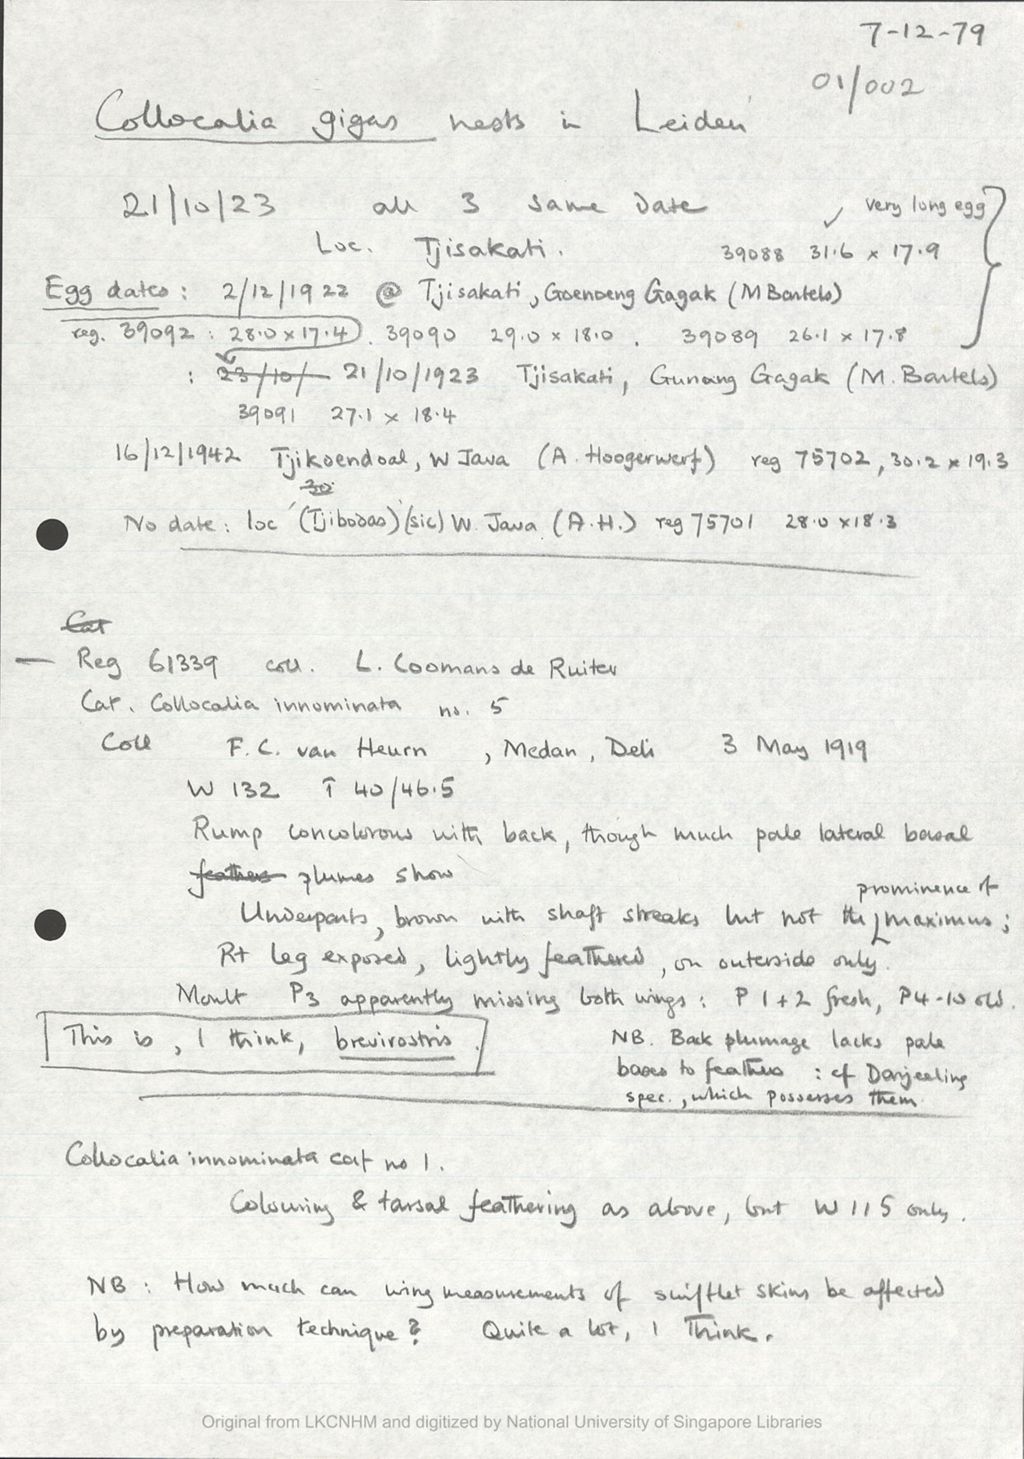 7-12-79
01/002
Collocalia gigas nests in Leiden
21/10/23 all 3 same date
very long egg
Loc. Tjisakati. 39088 31.6 x 17.9
Egg dates: 2/12/1922 @ Tjisakati, Goenoeng Gagak (M Bartels)
reg. 39092 : 28.0 x 17.4. 39090 29.0 x 18.0. 39089 26.1 x 17.8
: 23/10/ 21/10/1923 Tjisakati, Gunong Gagak (M. Bartels)
39091 27.1 x 18.4
16/12/1942 Tjikoendoal, W Java (A. Hoogerwerf) reg 75702, 30.2 x 19.3
30
No date: loc '(Tjibodas)' (sic) W. Java (A.H.) reg 75701 28.0 x 18.3
Cat
— Reg 61339 coll. L. Coomans de Ruiter
Cat. Collocalia innominata no. 5
Coll F.C. van Heurn, Medan, Deli 3 May 1919
W 132 T 40/46.5
Rump concolorous with back, though much pale lateral basal
feathers plumes show
prominence of
Underparts, brown with shaft streaks but not the maximus;
Rt leg exposed, lightly feathered, on outerside only.
Moult P3 apparently missing both wings: P 1+2 fresh, P4-10 old.
This is, I think, brevirostris.
NB. Back plumage lacks pale
bases to feathers : cf Darjeeling
spec., which possesses them.
Collocalia innominata cat no 1.
Colouring & tarsal feathering as above, but W 115 only.
NB : How much can wing measurements of swiftlet skins be affected
by preparation technique? Quite a lot, I think.
Original from LKCNHM and digitized by National University of Singapore Libraries